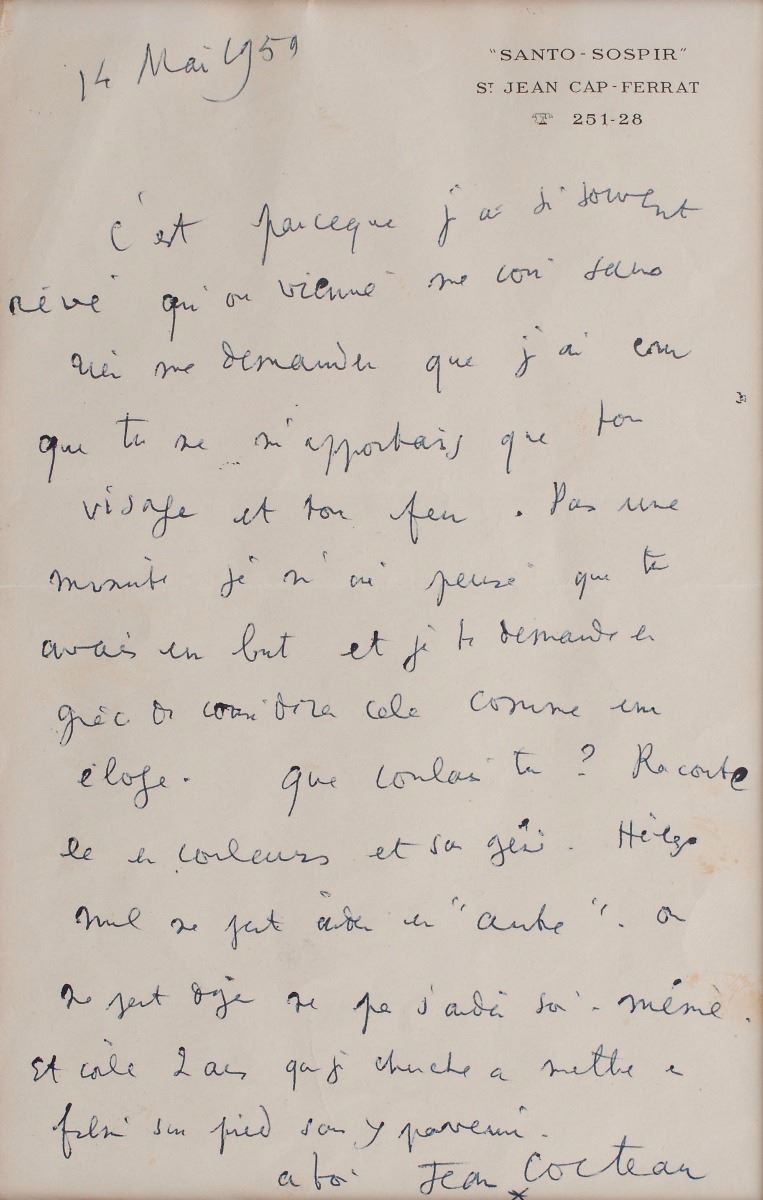 14 Mai 1959
"SANTO-SOSPIR"
ST JEAN CAP-FERRAT
251-28
C'est parceque j'ai si souvent
rêvé qu'on vienne me voir sans
rien me demander que j'ai cru
que tu ne m'apportais que ton
visage et ton feu. Pas une
minute je n'ai pensé que tu
avais un but et je te demande en
grâce de considérer cela comme un
éloge. Que voulais tu ? Raconte
le en couleurs et sa gêne. Hélas
nul ne peut aider un "autre". On
ne peut déjà ne pas s'aider soi-même.
Et voilà 2 ans que je cherche a mettre
film sur pied sans y parvenir.
a toi Jean Cocteau